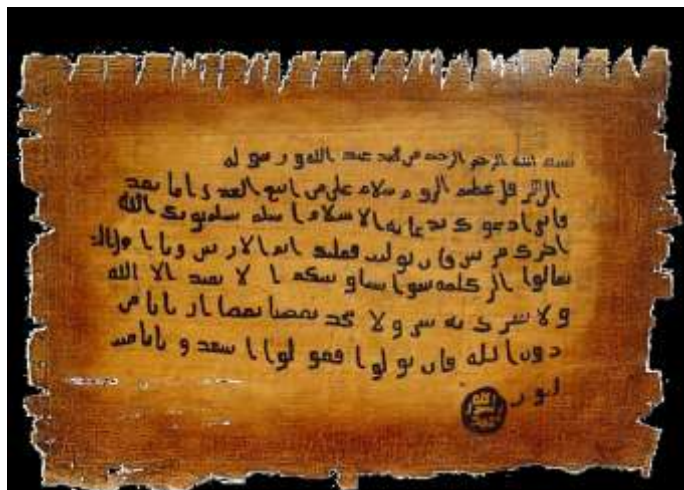 بسم الله الرحمن الرحيم من محمد عبد الله ورسوله
الى هرقل عظيم الروم سلام على من اتبع الهدى اما بعد
فانى ادعوك بدعاية الاسلام اسلم تسلم يوتك الله
اجرك مرتين فان توليت فعليك اثم الاريسين ويا اهل
تعالوا الى كلمة سوا بيننا وبينكم ا لا نعبد الا الله
ولا نشرك به شى ولا يتخذ بعضنا بعضا اربابا من
دون الله فان تولوا فقولوا اشهدو بانا مسلـ
مون
الله
رسول
محمد